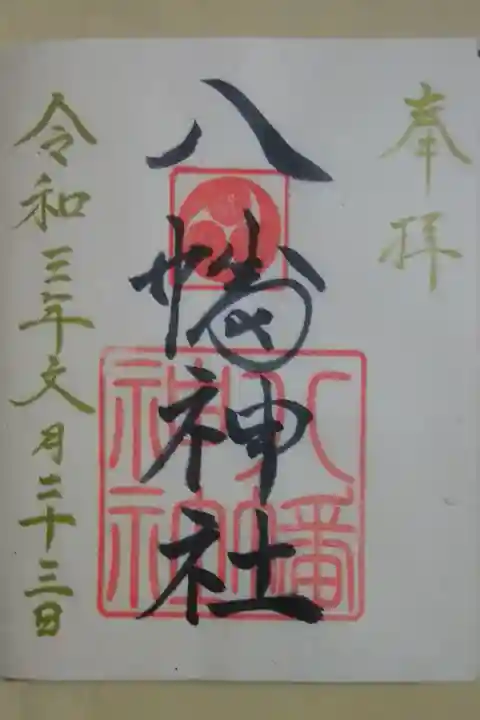 奉拝
八幡神社
八幡
神社
令和三年文月二十三日